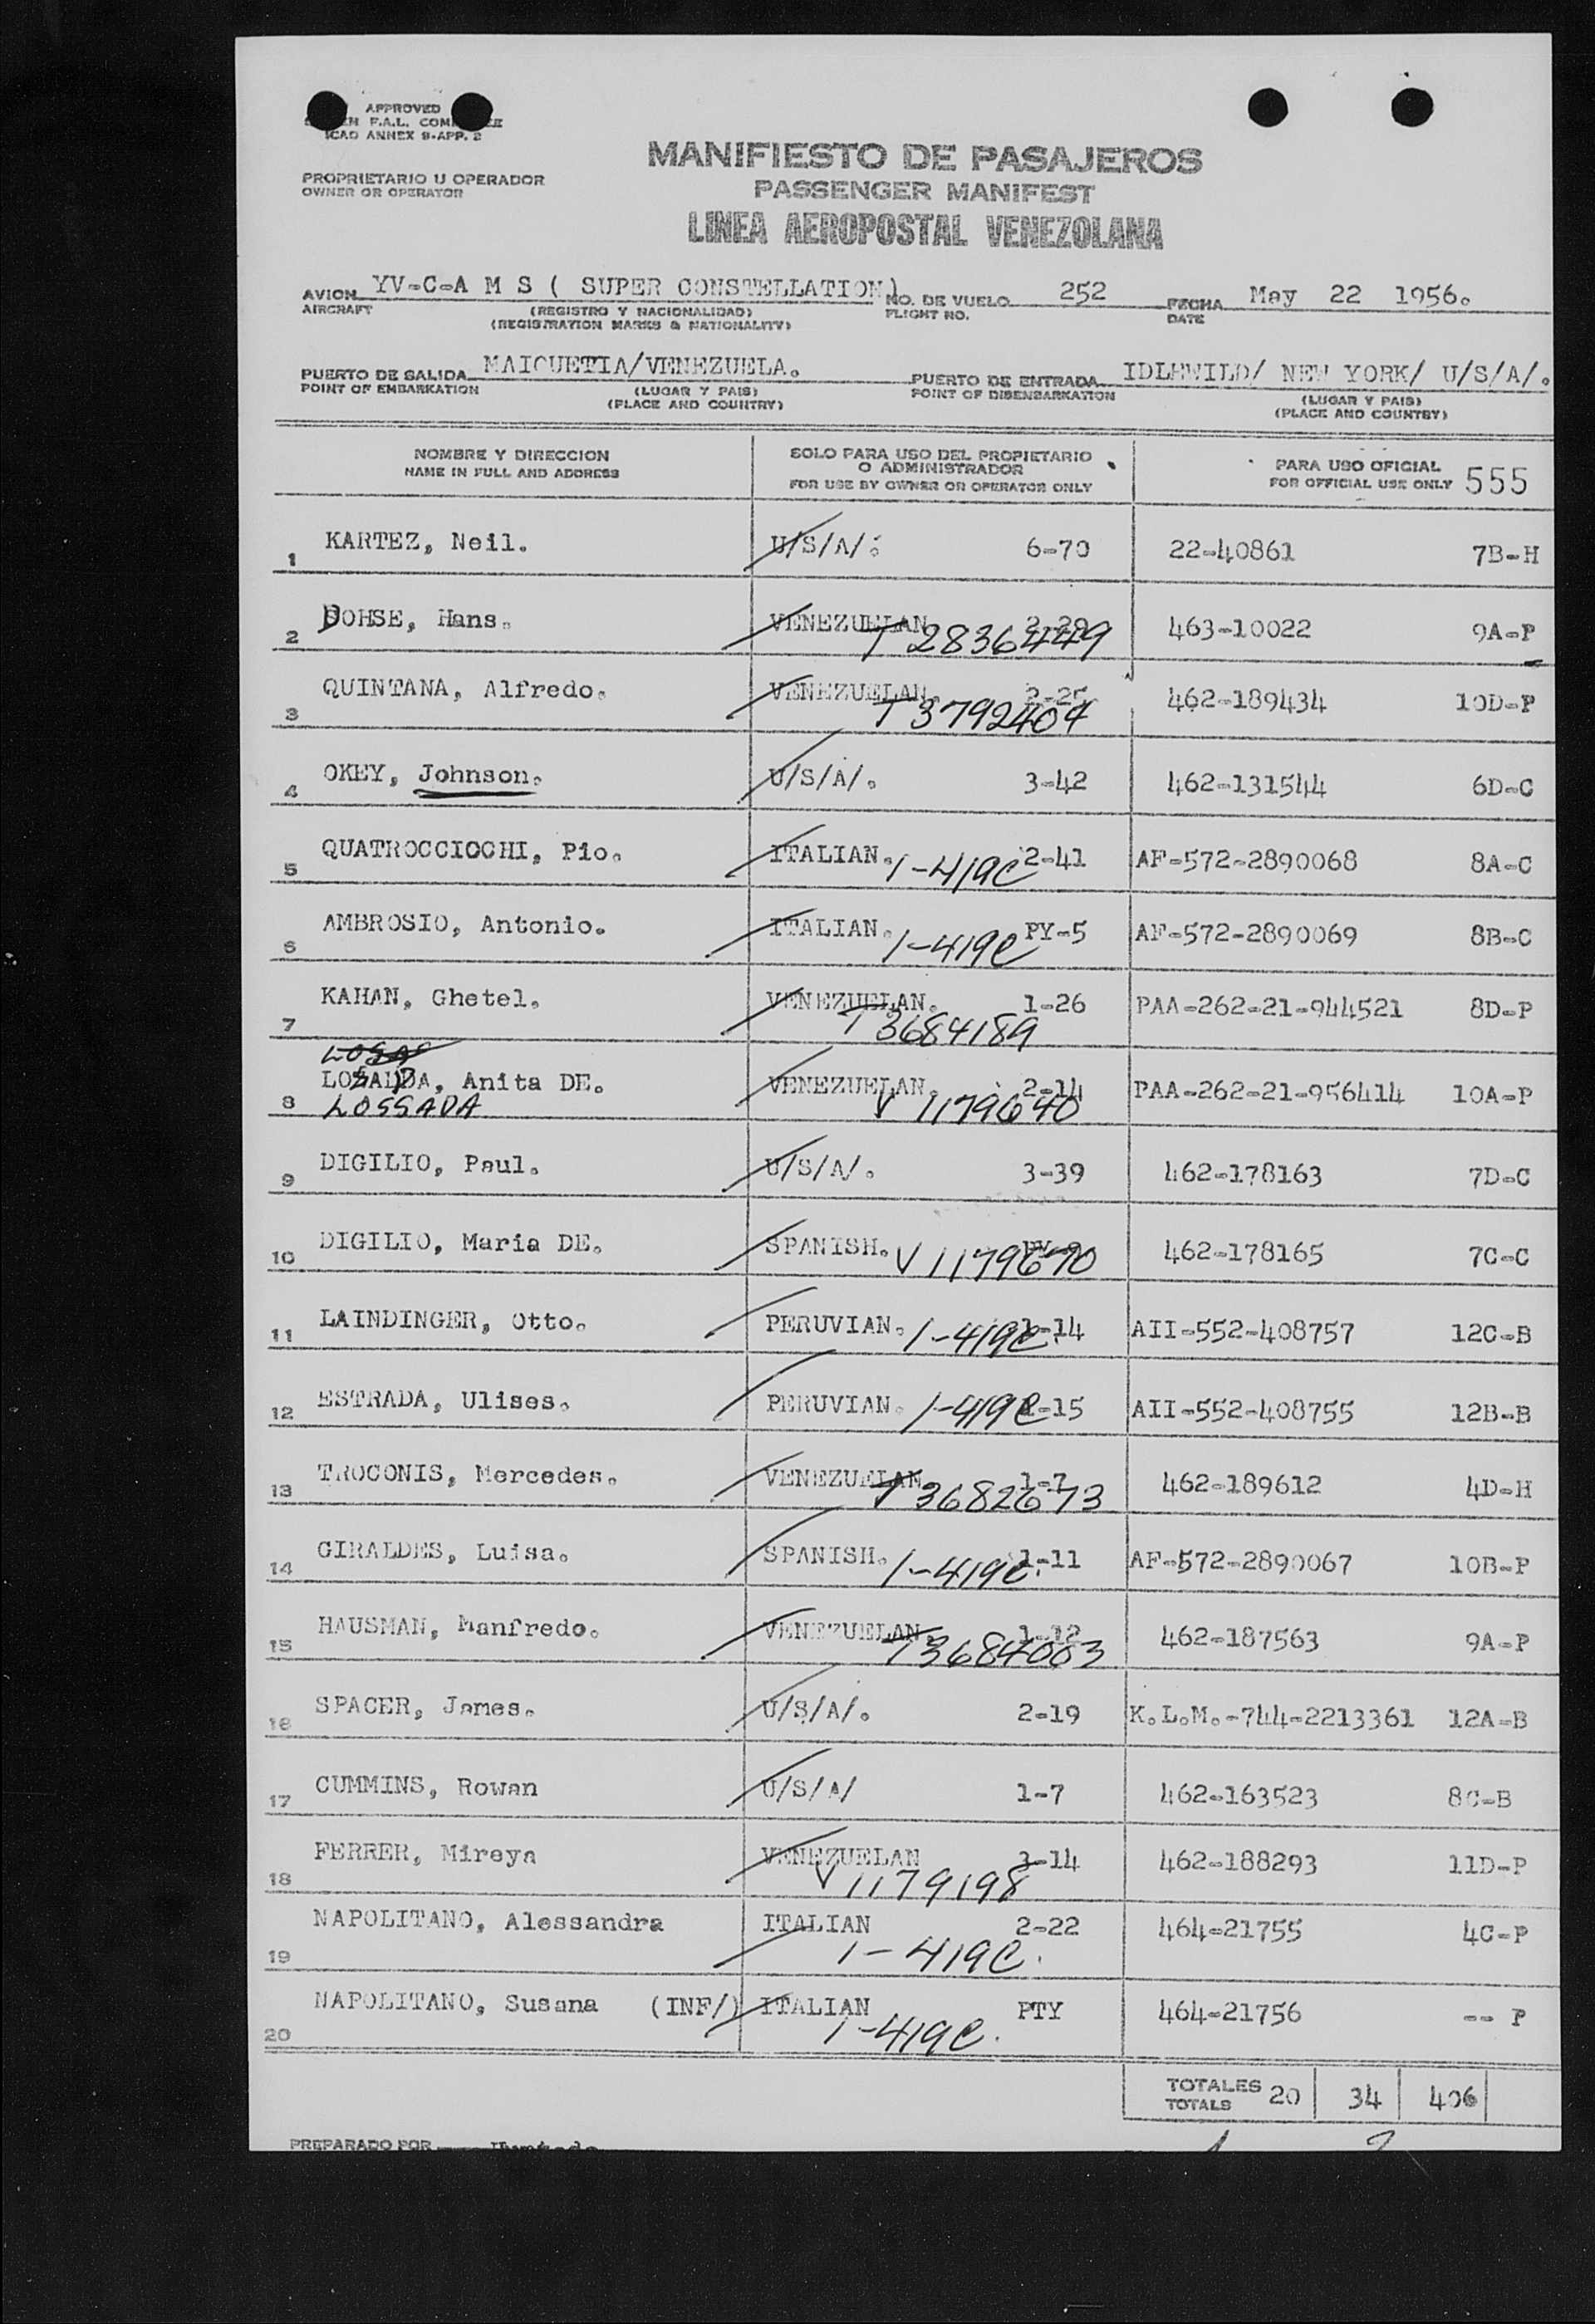 APPROVED
F.A.L.
ICAO ANNEX 9-APP. 2
PROPRIETARIO U OPERADOR
OWNER OR OPERATOR
MANIFIESTO DE PASAJEROS
PASSENGER MANIFEST
LINEA AEROPOSTAL VENEZOLANA
AVION YV-C-A M S ( SUPER CONSTELLATION) NO. DE VUELO 252 FECHA May 22 1956.
AIRCRAFT (REGISTRO Y NACIONALIDAD) FLIGHT NO. DATE
(REGISTRATION MARKS & NATIONALITY)
PUERTO DE SALIDA MAIQUETIA/VENEZUELA. PUERTO DE ENTRADA IDLEWILD/ NEW YORK/ U/S/A/.
POINT OF EMBARKATION (LUGAR Y PAIS) POINT OF DISENBARKATION (LUGAR Y PAIS)
(PLACE AND COUNTRY) (PLACE AND COUNTRY)
NOMBRE Y DIRECCION
NAME IN FULL AND ADDRESS
SOLO PARA USO DEL PROPIETARIO
O ADMINISTRADOR
FOR USE BY OWNER OR OPERATOR ONLY
PARA USO OFICIAL
FOR OFFICIAL USE ONLY 555
1 KARTEZ, Neil. U/S/A/. 6-70 22-40861 7B-H
2 DOHSE, Hans. VENEZUELAN 463-10022 9A-P
T 2836449
3 QUINTANA, Alfredo. VENEZUELAN. 2-25 462-189434 10D-P
T 3792404
4 OKEY, Johnson. U/S/A/. 3-42 462-131544 6D-C
5 QUATROCCIOCHI, Pio. ITALIAN. 1-419C 2-41 AF-572-2890068 8A-C
6 AMBROSIO, Antonio. ITALIAN. 1-419C PY-5 AF-572-2890069 8B-C
7 KAHAN, Ghetel. VENEZUELAN. 1-26 PAA-262-21-944521 8D-P
T 3684189
LOSA
8 LOSADA, Anita DE. VENEZUELAN. 2-14 PAA-262-21-956414 10A-P
LOSSADA V 1179640
9 DIGILIO, Paul. U/S/A/. 3-39 462-178163 7D-C
10 DIGILIO, Maria DE. SPANISH. V 1179670 462-178165 7C-C
11 LAINDINGER, Otto. PERUVIAN. 1-419C 1-14 AII-552-408757 12C-B
12 ESTRADA, Ulises. PERUVIAN. 1-419C 1-15 AII-552-408755 12B-B
13 TROCONIS, Mercedes. VENEZUELAN 1-7 462-189612 4D-H
T 3682673
14 GIRALDES, Luisa. SPANISH. 1-419C. 1-11 AF-572-2890067 10B-P
15 HAUSMAN, Manfredo. VENEZUELAN. 1-12 462-187563 9A-P
T 3684003
16 SPACER, James. U/S/A/. 2-19 K.L.M.-744-2213361 12A-B
17 CUMMINS, Rowan U/S/A/ 1-7 462-163523 8C-B
18 FERRER, Mireya VENEZUELAN 3-14 462-188293 11D-P
V 1179198
19 NAPOLITANO, Alessandra ITALIAN 2-22 464-21755 4C-P
1-419C.
20 NAPOLITANO, Susana (INF/) ITALIAN PTY 464-21756 -- P
1-419C.
TOTALES 20 34 406
TOTALS
PREPARADO POR